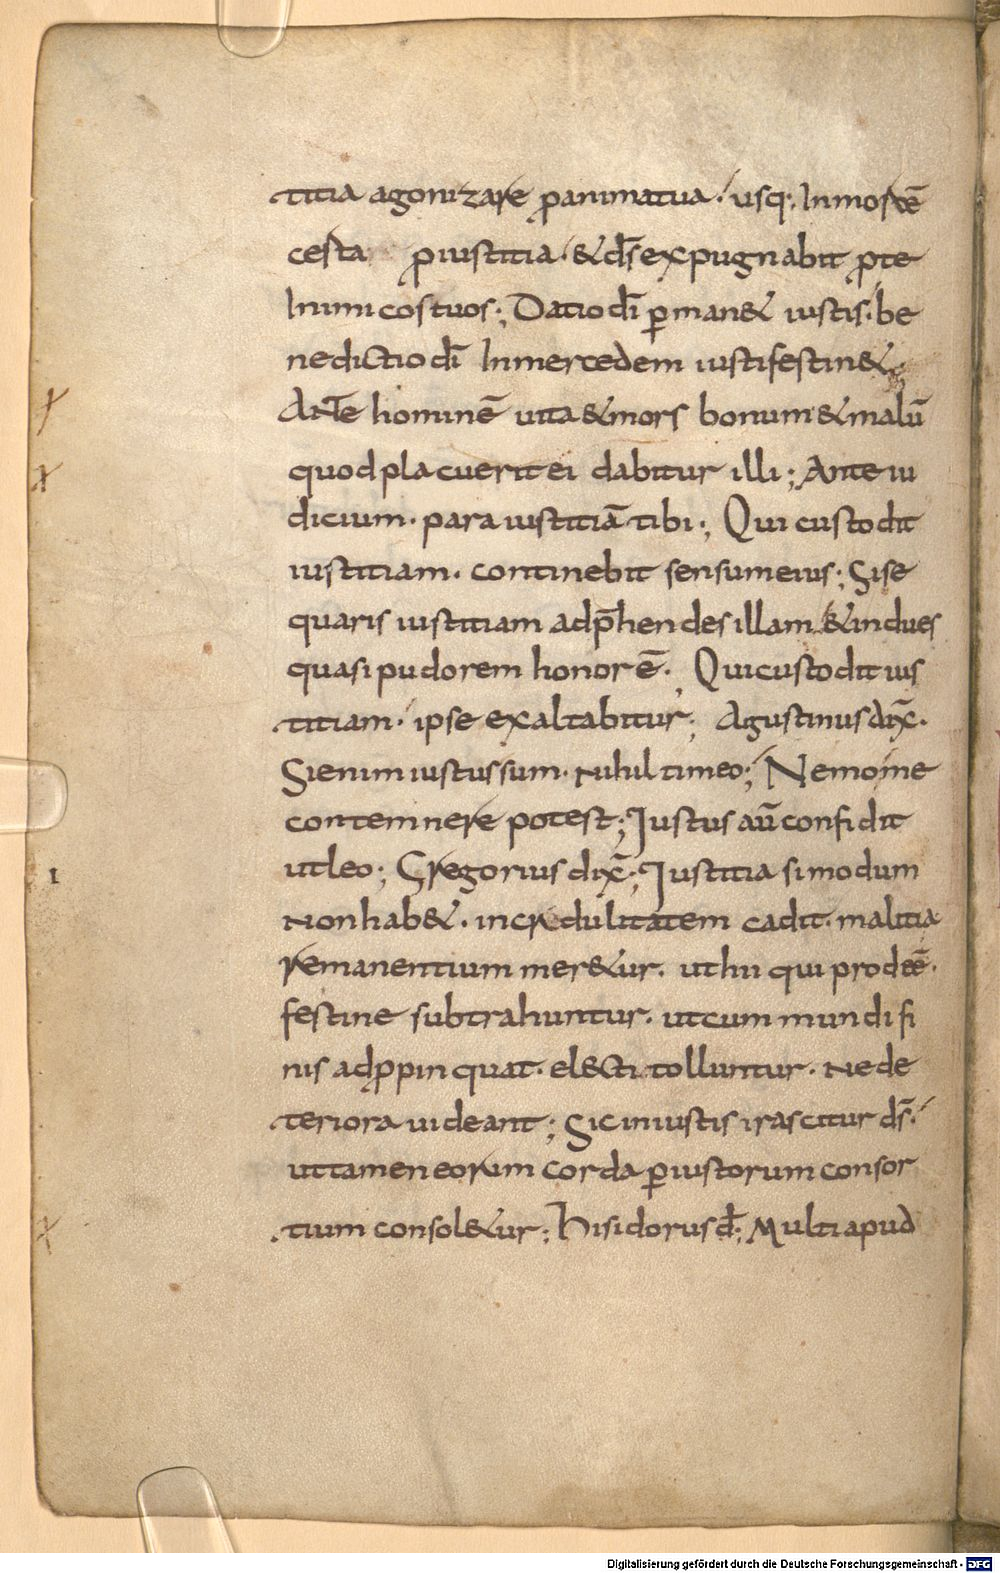 titia agonizare ꝓanimatua· usq; Inmortē
cesta ꝓiustitia· &d̄s expugnabit ꝓte
Inimicos tuos; Datio dī ꝑman& iustis· be
nedictio dī Inmercedem iusti festin&;
Ante hominē uita &mors bonum &malū
quod placuerit ei dabitur illi; Ante iu
dicium· para iustitiā tibi; Qui custodit
iustitiam· continebit sensum eius; Si se
quaris iustitiam adp̄hendes illam &indues
quasi pudorem honorē· Qui custodit ius
titiam· ipse exaltabitur; Agustinus dix̄·
Si enim iustus sum· nihil timeo; Nemo me
contemnere potest; Iustus aū confidit
ut leo; Gregorius dix̄; Iustitia si modum
non hab&· in crudulitatem cadit· malitia
remanentium mer&ur· ut hii qui prodeē·
festine subtrahuntur· ut cum mundi fi
nis adꝓpinquat· el&cti tolluntur· ne de
teriora uideant; Sic iniustis irascitur d̄s·
ut tamen eorum corda ꝑiustorum consor
tium consol&ur; Hisidorus đ; Multi apud
I
Digitalisierung gefördert durch die Deutsche Forschungsgemeinschaft - DFG